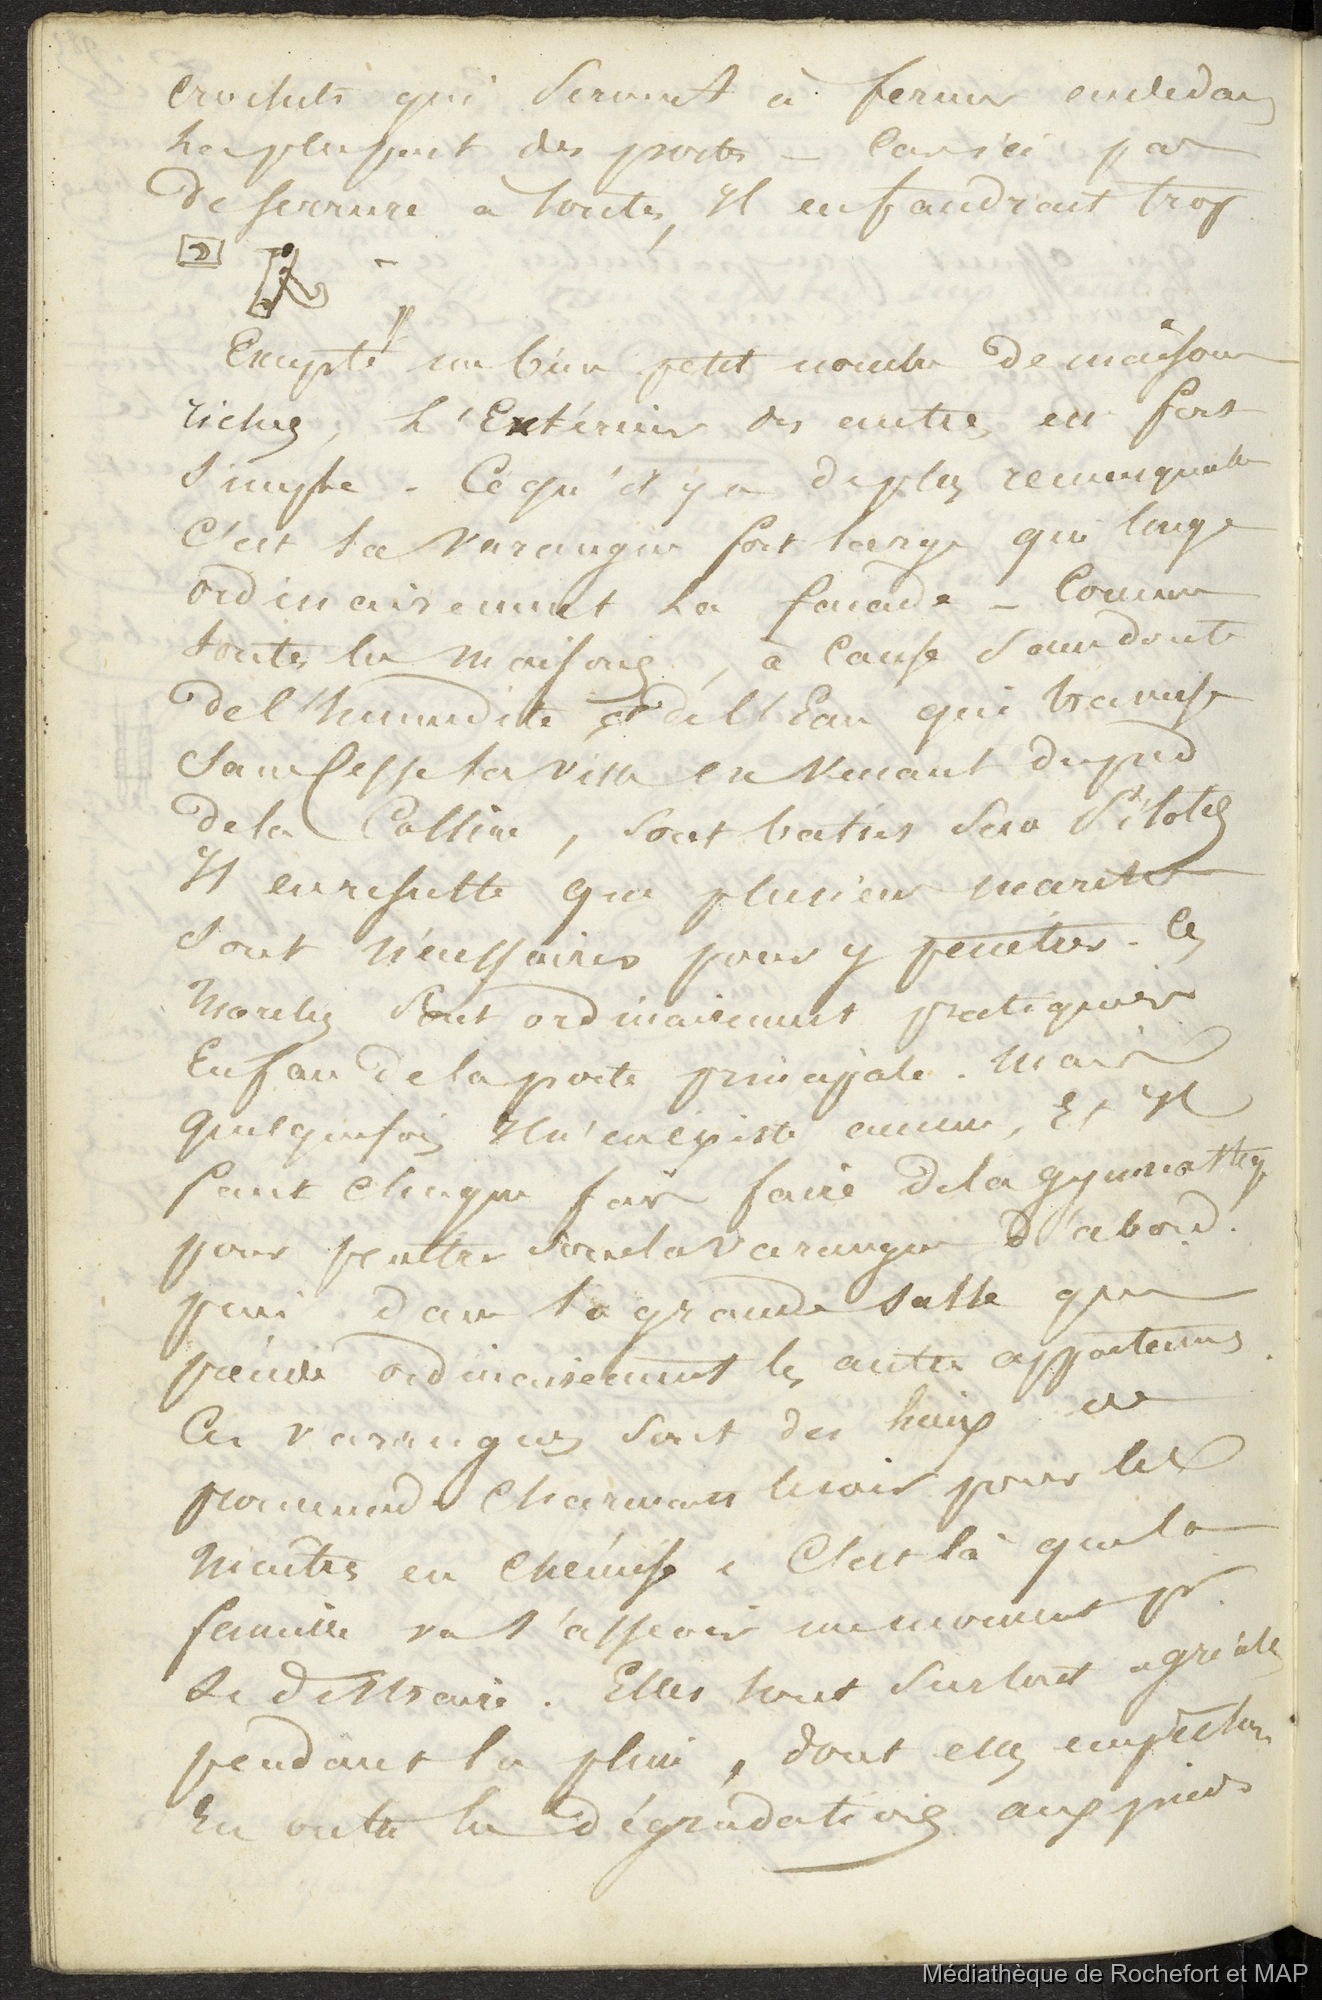 Crochets qui servent à fermer endedans
la plupart des portes – Car ici pas
de serrure a toutes, Il en faudrait trop
Excepté un bien petit nombre de maisons
riches, L'Extérieur des autres est fort
Simple - Cequ'il y a deplus remarquable
C'est la Varangue fort large qui longe
ordinairement la facade – Comme
toutes les maisons, à Cause Sansdoute
del'humidité et del'Eau qui traverse
Sans Cesse la ville en Venant du pied
dela Colline, sont baties Sur Pilotis
Il enresulte que plusieurs marches
Sont nécessaires pour y pénétrer. Ces
Marches Sont ordinairement pratiquées
Enface dela porte principale. Mais
quelquefois Iln'enexiste aucune, Et Il
faut Chaque fois faire dela gymnastique
pour pénétrer Sousla Varangue d'abord.
puis dans la grande Salle qui
précède ordinairement les autres appartements.
Ces varangues sont des lieux de
promenade Charmans lesoir pour les
Maitres en Chemise ; C'est là que la
famille va s'asseoir unmoment pr
Se distraire. Elles sont Surtout agréables
pendant la pluie, dont elles empêchent
En outre les dégradations aux pieds
Médiathèque de Rochefort et MAP